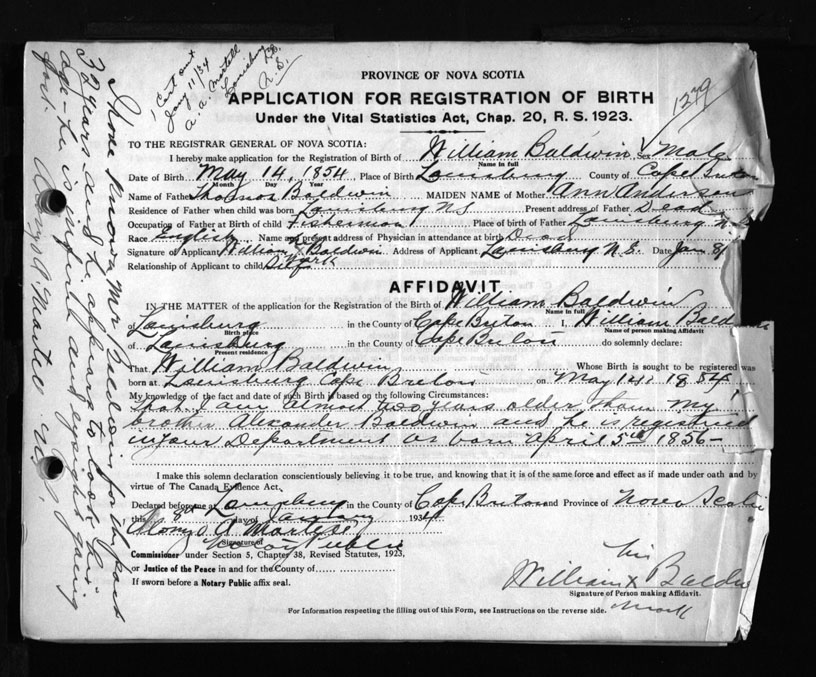 1 Cert sent
Jany 11/34
A. A. Martell
Louisburg
N.S.
1279
PROVINCE OF NOVA SCOTIA
APPLICATION FOR REGISTRATION OF BIRTH
Under the Vital Statistics Act, Chap. 20, R. S. 1923.
TO THE REGISTRAR GENERAL OF NOVA SCOTIA:
I hereby make application for the Registration of Birth of William Baldwin Sex Male
Name in full
Date of Birth May 14, 1854 Place of Birth Louisburg County of Cape Breton
Month Day Year
Name of Father Thomas Baldwin MAIDEN NAME of Mother Ann Anderson
Residence of Father when child was born Louisburg N.S. Present address of Father Dead
Occupation of Father at Birth of child Fisherman Place of birth of Father Louisburg N.S
Race English Name and present address of Physician in attendance at birth Dead
Signature of Applicant William X Baldwin Address of Applicant Louisburg N.S. Date Jan 8/
mark
Relationship of Applicant to child Self
AFFIDAVIT
IN THE MATTER of the application for the Registration of the Birth of William Baldwin
Name in full
of Louisburg in the County of Cape Breton I, William Baldwin
Birth place Name of person making Affidavit
of Louisburg in the County of Cape Breton do solemnly declare:
Present residence
That William Baldwin Whose Birth is sought to be registered was
born at Louisburg Cape Breton on May 14th 1854
My knowledge of the fact and date of such Birth is based on the following Circumstances:
that I am almost two years older than my
brother Alexander Baldwin and he is registered
in your Department as born April 5th 1856-
I make this solemn declaration conscientiously believing it to be true, and knowing that it is of the same force and effect as if made under oath and by
virtue of The Canada Evidence Act.
Declared before me at Louisburg in the County of Cape Breton and Province of Nova Scotia
this day of January 1934
A. Martell
Signature of
Notary Public
Commissioner under Section 5, Chapter 38, Revised Statutes, 1923,
or Justice of the Peace in and for the County of
If sworn before a Notary Public affix seal.
his
William X Baldwin
Signature of Person making Affidavit.
mark
For Information respecting the filling out of this Form, see Instructions on the reverse side.
I have known Mr Baldwin for the past
32 years and he appears to look his
age - he is in full and eyesight going
fast. A. Martell N.P.